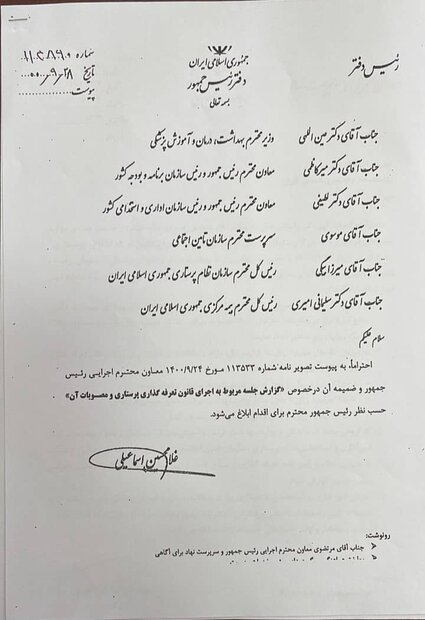 جمهوری اسلامی ایران
رئیس دفتر
دفتر رئیس جمهور
بسمه تعالی
شماره
تاریخ ۲۸/۹/۰۰
پیوست
جناب آقای دکتر عین اللهی وزیر محترم بهداشت، درمان و آموزش پزشکی
جناب آقای دکتر میرکاظمی معاون محترم رئیس جمهور و رئیس سازمان برنامه و بودجه کشور
جناب آقای دکتر لطیفی معاون محترم رئیس جمهور و رئیس سازمان اداری و استخدامی کشور
جناب آقای موسوی سرپرست محترم سازمان تامین اجتماعی
جناب آقای میرزابیگی رئیس کل محترم سازمان نظام پرستاری جمهوری اسلامی ایران
جناب آقای دکتر سلیمانی امیری رئیس کل محترم بیمه مرکزی جمهوری اسلامی ایران
سلام علیکم
احتراماً، به پیوست تصویر نامه شماره ۱۱۳۵۳۳ مورخ ۱۴۰۰/۹/۲۴ معاون محترم اجرایی رئیس
جمهور و ضمیمه آن درخصوص «گزارش جلسه مربوط به اجرای قانون تعرفه گذاری پرستاری و مصوبات آن»
حسب نظر رئیس جمهور محترم برای اقدام ابلاغ می‌شود.
غلامحسین اسماعیلی
رونوشت:
جناب آقای مرتضوی معاون محترم اجرایی رئیس جمهور و سرپرست نهاد برای آگاهی